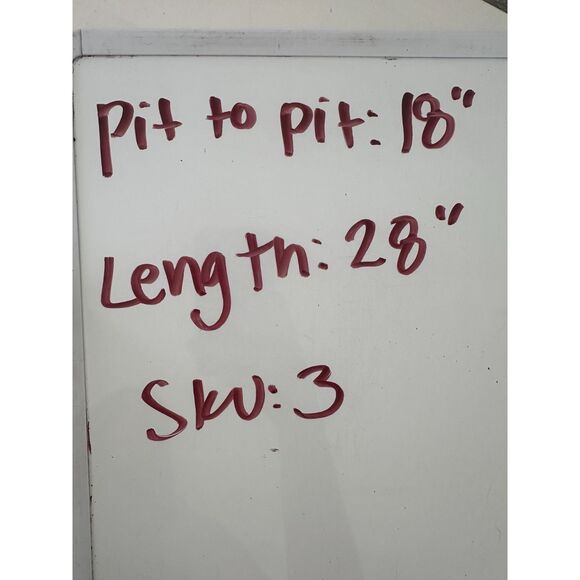 Pit to pit: 18"
Length: 28"
SKU: 3